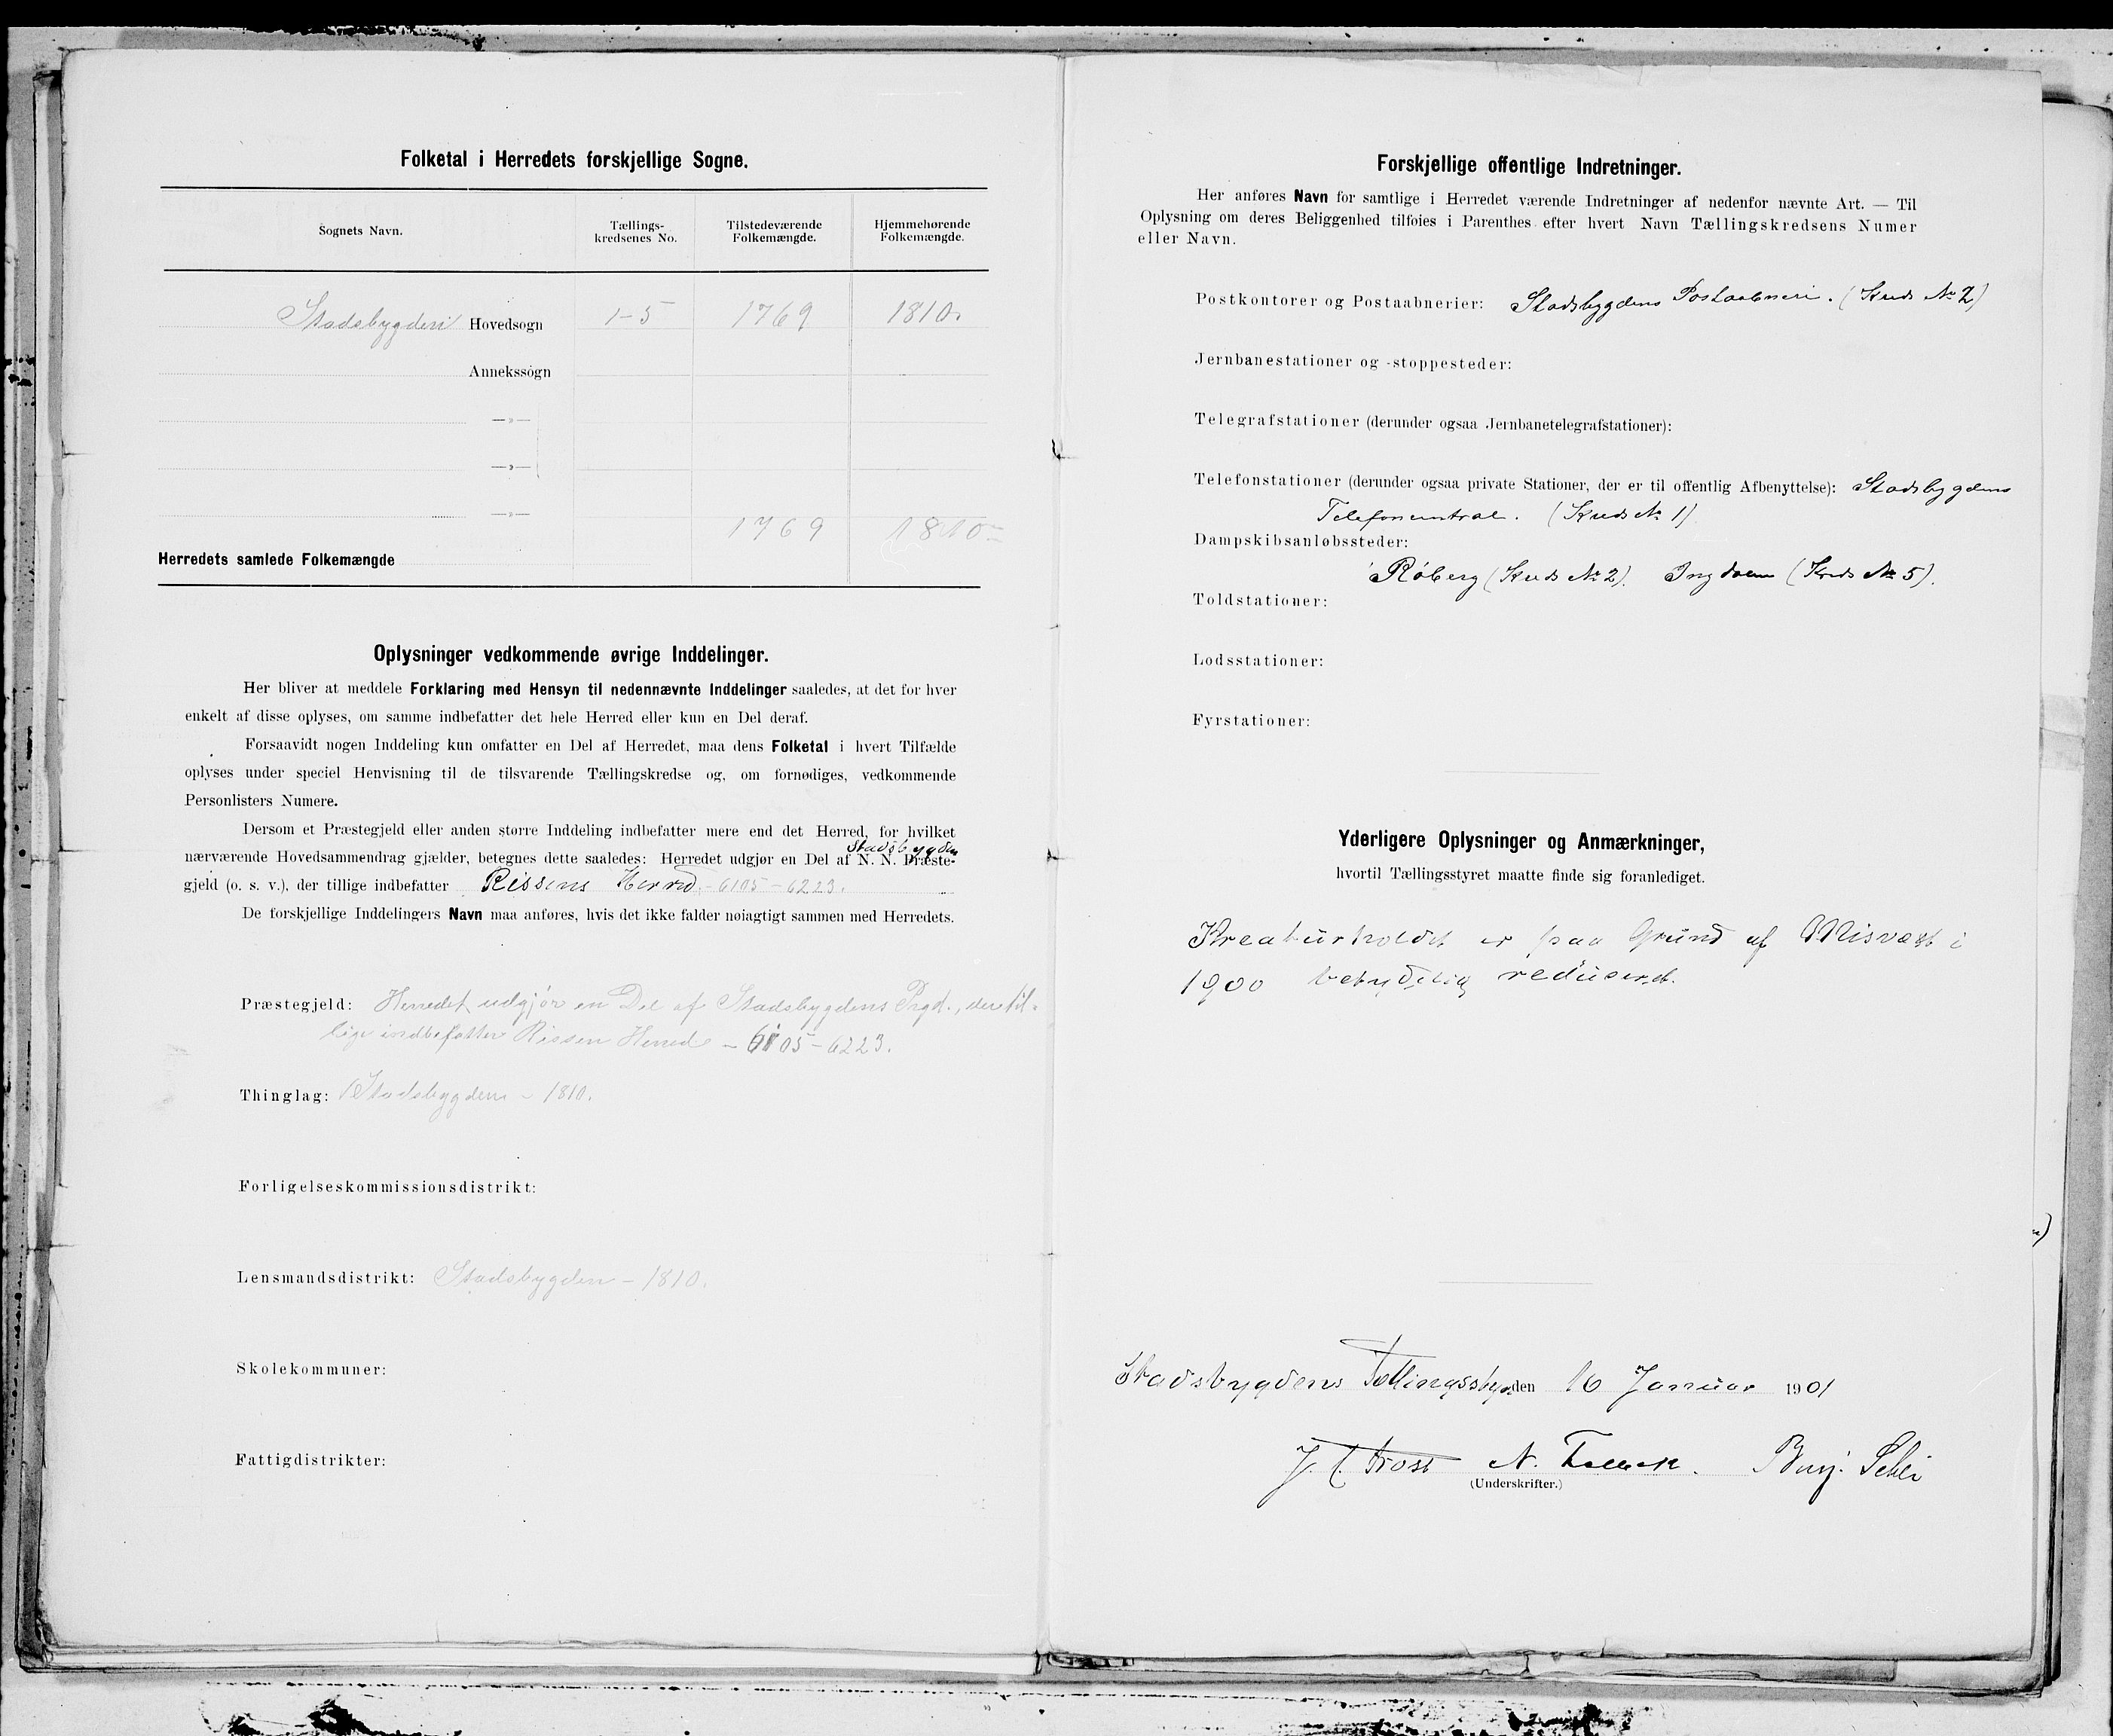 Folketal i Herredets forskjellige Sogne.
Sognets Navn. Tællings-kredsenes No. Tilstedeværende Folkemængde. Hjemmehørende Folkemængde.
Stadsbygden Hovedsogn 1-5 1769 1810.
Annekssogn
—»—
—»—
—»—
1769 1810
Herredets samlede Folkemængde
Oplysninger vedkommende øvrige Inddelinger.
Her bliver at meddele Forklaring med Hensyn til nedennævnte Inddelinger saaledes, at det for hver
enkelt af disse oplyses, om samme indbefatter det hele Herred eller kun en Del deraf.
Forsaavidt nogen Inddeling kun omfatter en Del af Herredet, maa dens Folketal i hvert Tilfælde
oplyses under speciel Henvisning til de tilsvarende Tællingskredse og, om fornødiges, vedkommende
Personlisters Numere.
Dersom et Præstegjeld eller anden større Inddeling indbefatter mere end det Herred, for hvilket
Stadsbygden
nærværende Hovedsammendrag gjælder, betegnes dette saaledes: Herredet udgjør en Del af N. N. Præste-
gjeld (o. s. v.), der tillige indbefatter Rissens Herred - 6105 - 6223.
De forskjellige Inddelingers Navn maa anføres, hvis det ikke falder nøiagtigt sammen med Herredets.
Præstegjeld: Herredet udgjør en Del af Stadsbygdens Prgd., der til-
lige indbefatter Rissen Herred - 6105 - 6223.
Thinglag: Stadsbygden - 1810.
Forligelseskommissionsdistrikt:
Lensmandsdistrikt: Stadsbygden - 1810.
Skolekommuner:
Fattigdistrikter:
Forskjellige offentlige Indretninger.
Her anføres Navn for samtlige i Herredet værende Indretninger af nedenfor nævnte Art. — Til
Oplysning om deres Beliggenhed tilføies i Parenthes efter hvert Navn Tællingskredsens Numer
eller Navn.
Postkontorer og Postaabnerier: Stadsbygdens Postaabneri. (Kreds № 2)
Jernbanestationer og -stoppesteder:
Telegrafstationer (derunder ogsaa Jernbanetelegrafstationer):
Telefonstationer (derunder ogsaa private Stationer, der er til offentlig Afbenyttelse): Stadsbygdens
Telefoncentral. (Kreds № 1)
Dampskibsanløbssteder:
Røberg (Kreds № 2). Ingdalen (Kreds № 5).
Toldstationer:
Lodsstationer:
Fyrstationer:
Yderligere Oplysninger og Anmærkninger,
hvortil Tællingsstyret maatte finde sig foranlediget.
Kreaturholdet er paa Grund af Misvæxt i
1900 betydelig reduceret.
Stadsbygdens den 16 Januar 1901
N. Benj.
(Underskrifter.)